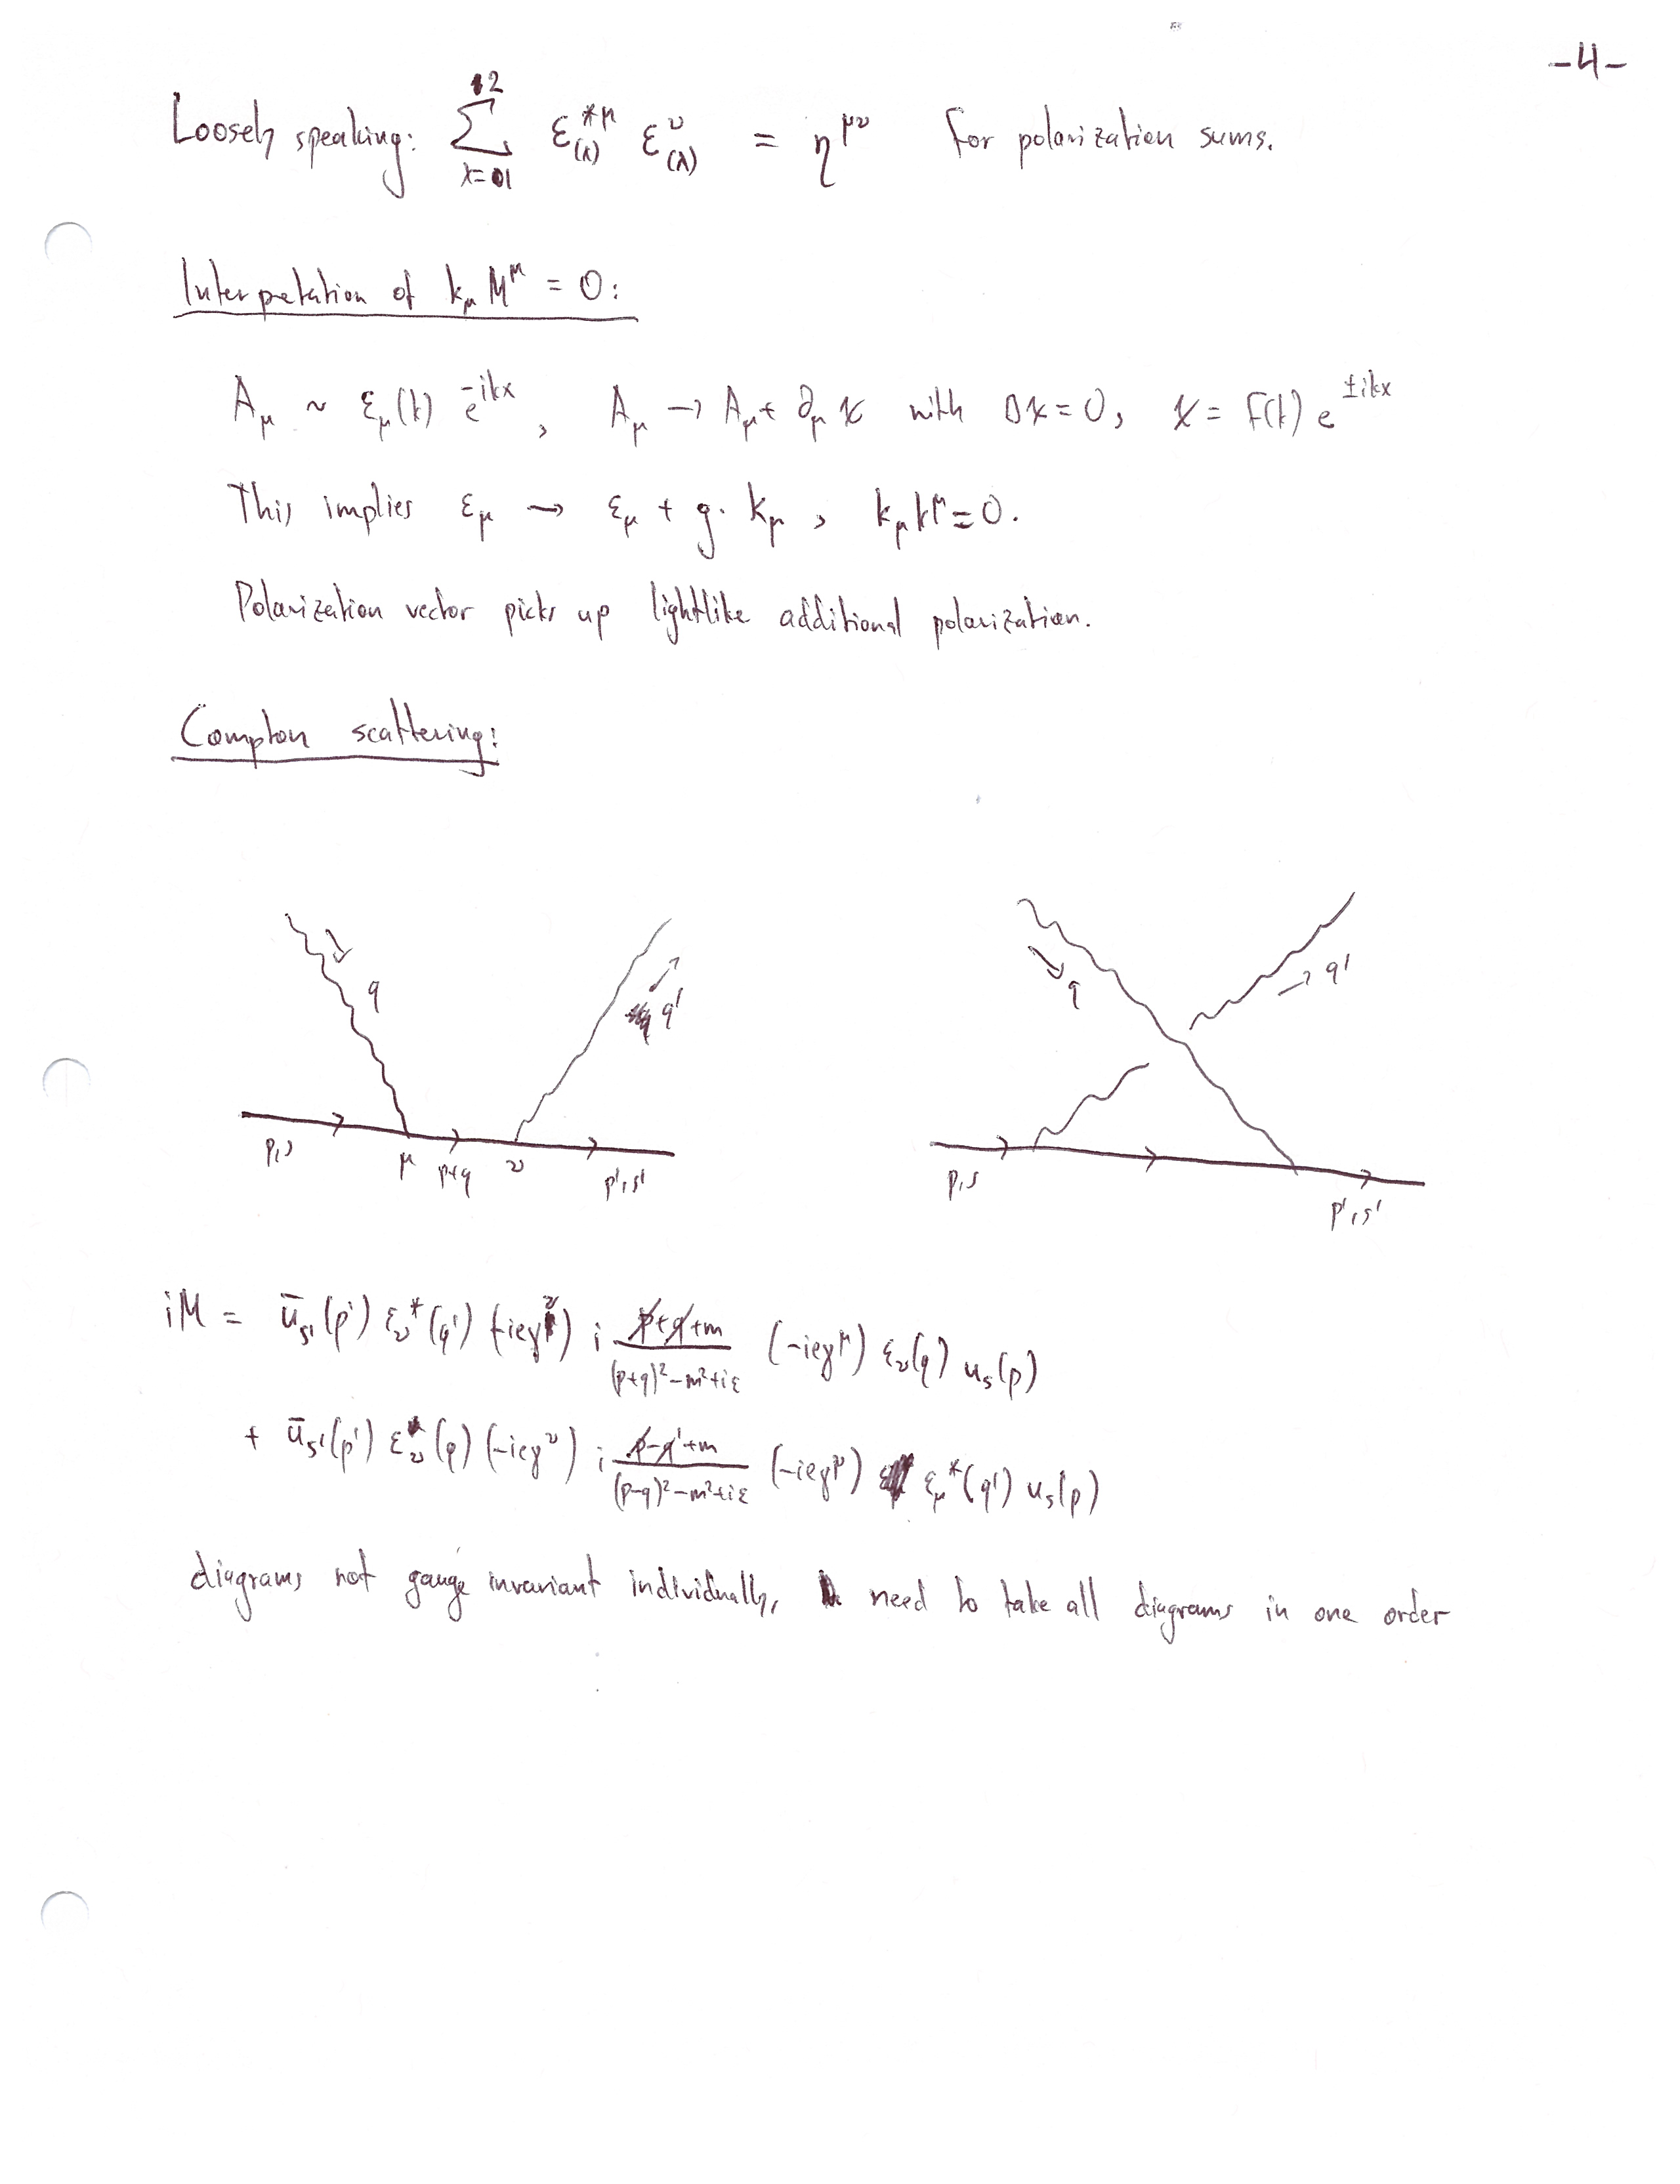 -4-
Loosely speaking: ∑_{λ=01}^{2} ε^{*μ}_{(λ)} ε^{ν}_{(λ)} = η^{μν} for polarization sums.
Interpretation of k_μ M^μ = 0:
A_μ ~ ε_μ(k) e^{-ikx}, A_μ → A_μ + ∂_μ χ with □χ = 0, χ = f(k) e^{±ikx}
This implies ε_μ → ε_μ + g · k_μ, k_μ k^μ = 0.
Polarization vector picks up lightlike additional polarization.
Compton scattering:
q q' q q'
p,s μ p+q ν p',s' p,s p',s'
iM = ū_{s'}(p') ε_ν^*(q') (-ieγ^ν) i (p̸+q̸+m)/((p+q)²-m²+iε) (-ieγ^μ) ε_ν(q) u_s(p)
+ ū_{s'}(p') ε_ν(q) (-ieγ^ν) i (p̸-q̸'+m)/((p-q)²-m²+iε) (-ieγ^μ) ε_μ^*(q') u_s(p)
diagrams not gauge invariant individually, need to take all diagrams in one order